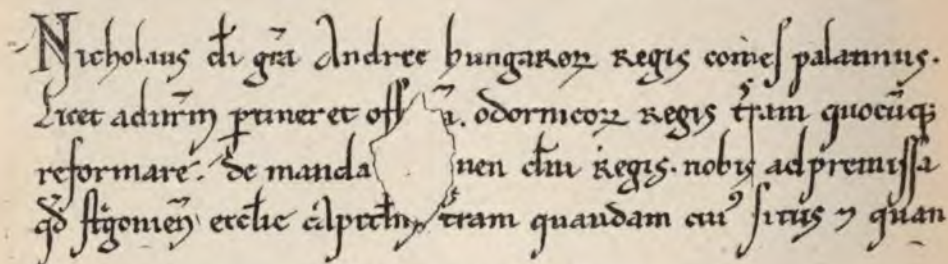 Nicholaus di gra Andree hungaroꝝ Regis comes palatinus.
Licet ad nrm ptineret off a. odornicoꝝ Regis tram quocuqꝫ
reformare. de manda nen dni Regis. nobis ad premissa
qd strigonien ecclie capitlm tram quandam cui' situs ⁊ quan